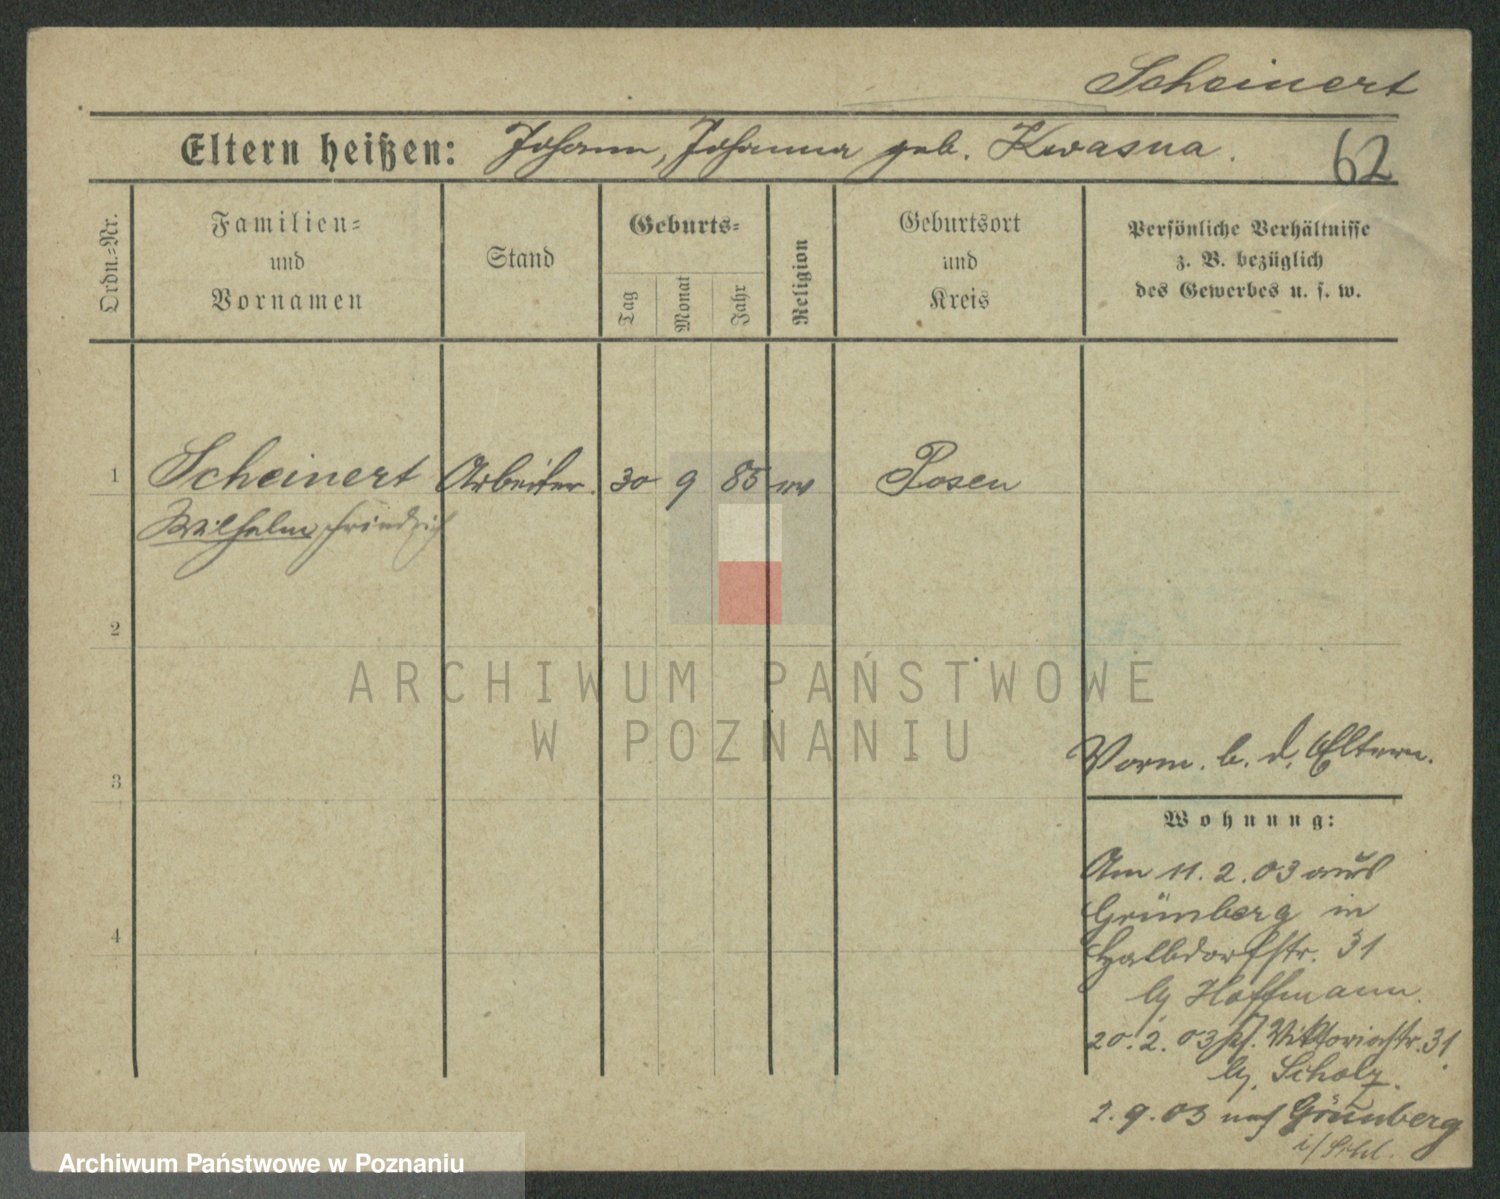 Scheinert
Eltern heißen: Johann, Johanna geb. Kwasna.
62
Ordn.-Nr.
Familien-
und
Vornamen
Stand
Geburts-
Tag
Monat
Jahr
Religion
Geburtsort
und
Kreis
Persönliche Verhältnisse
z. B. bezüglich
des Gewerbes u. s. w.
1 Scheinert Arbeiter. 30 9 85 ev Posen
Wilhelm Friedrich
2
ARCHIWUM PAŃSTWOWE
W POZNANIU
Vorm. b. d. Eltern.
3
Wohnung:
Am 11. 2. 03 aus
Grünberg in
4
Halbdorfstr. 31
b/ Hoffmann.
20. 2. 03 Viktoriastr. 31.
b/. Scholz.
2. 9. 03 nach Grünberg
i/ Schl.
Archiwum Państwowe w Poznaniu